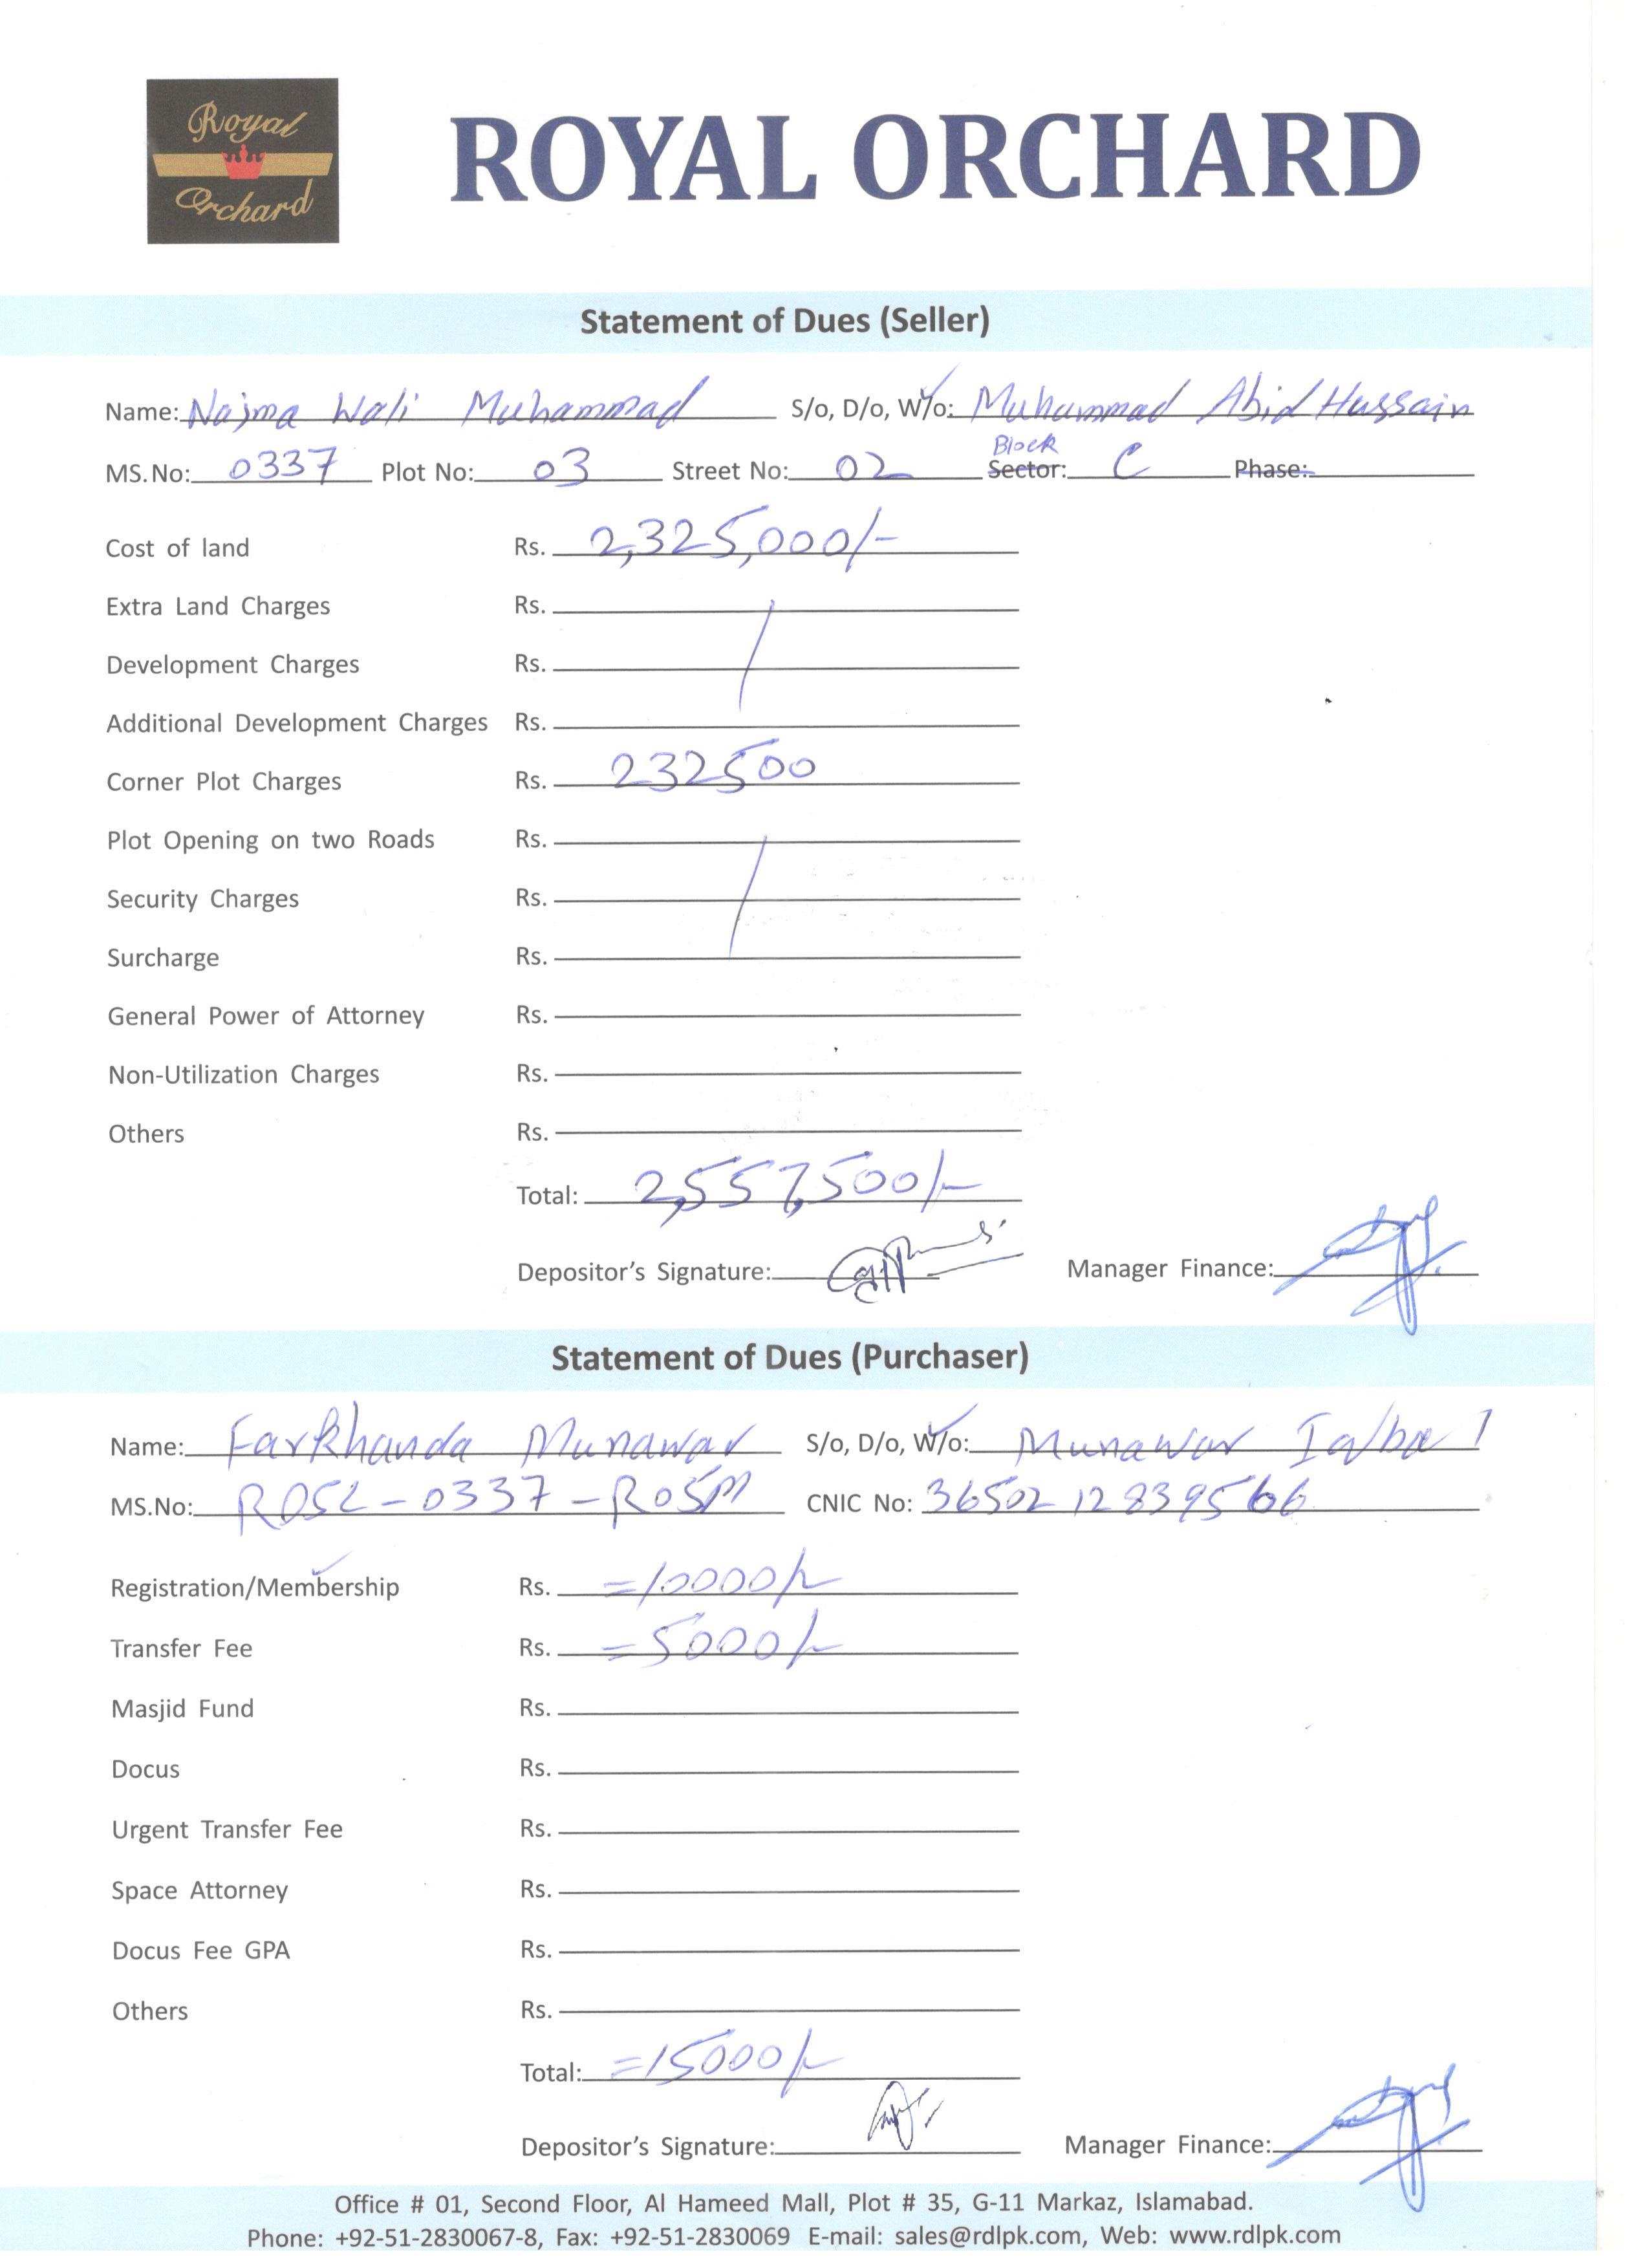 Royal
Orchard
ROYAL ORCHARD
Statement of Dues (Seller)
Name: Najma Wali Muhammad S/o, D/o, W/o: Muhammad Abid Hussain
Block
MS.No: 0337 Plot No: 03 Street No: 02 Sector: C Phase:
Cost of land Rs. 2,325,000/-
Extra Land Charges Rs.
Development Charges Rs.
Additional Development Charges Rs.
Corner Plot Charges Rs. 232500
Plot Opening on two Roads Rs.
Security Charges Rs.
Surcharge Rs.
General Power of Attorney Rs.
Non-Utilization Charges Rs.
Others Rs.
Total: 2,557,500/-
Depositor's Signature: Manager Finance:
Statement of Dues (Purchaser)
Name: Farkhanda Munawar S/o, D/o, W/o: Munawar Iqbal
MS.No: ROSL-0337-ROSM CNIC No: 36502 12839566
Registration/Membership Rs. =10000/-
Transfer Fee Rs. =5000/-
Masjid Fund Rs.
Docus Rs.
Urgent Transfer Fee Rs.
Space Attorney Rs.
Docus Fee GPA Rs.
Others Rs.
Total: =15000/-
Depositor's Signature: Manager Finance:
Office # 01, Second Floor, Al Hameed Mall, Plot # 35, G-11 Markaz, Islamabad.
Phone: +92-51-2830067-8, Fax: +92-51-2830069 E-mail: sales@rdlpk.com, Web: www.rdlpk.com